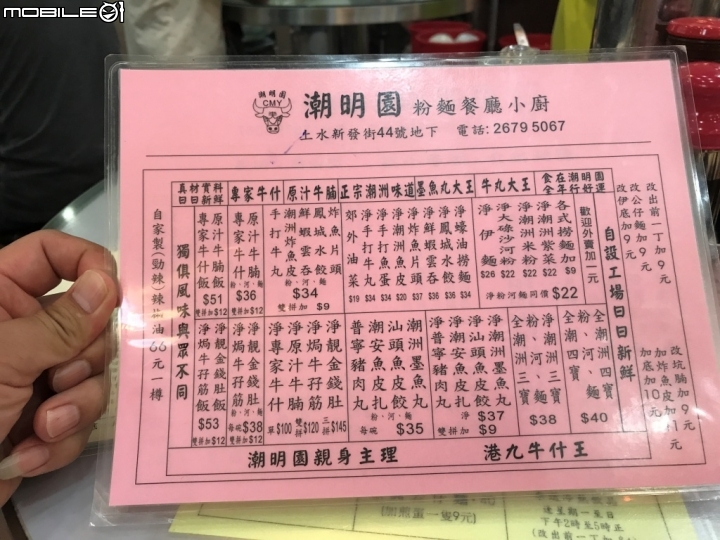 MOBILE01
潮明園
CMY
潮明園 粉麵餐廳小廚
上水新發街44號地下 電話: 2679 5067
食在潮行明好園
全年
牛丸大王
墨魚丸大王
正宗潮洲味道
原汁牛腩
專家牛什
真材實料
日日新鮮
改出前一丁加9元
改公仔麵加9元
改伊底加9元
自設工場日日新鮮
改坑腩加9元
加炸魚皮加11元
加底加10元
歡迎外賣加一元
各式撈麵加 $9
淨潮洲紫菜 $22
淨潮洲米粉 $22
淨大碌沙河粉 $22
淨伊麵 $26
淨粉河麵同價 $22
淨蠔油撈麵 $34
淨鳳城水餃 $36
淨鮮蝦雲吞 $36
淨炸魚片頭 $37
淨潮洲魚皮
淨手打魚蛋 $34
淨手打牛丸 $34
郊外油菜 $19
炸魚片頭
鳳城水餃
鮮蝦雲吞
潮洲炸魚皮
手打牛丸
粉、河、麵
$34
雙拼加 $9
原汁牛腩
專家牛什
粉、河、麵
$36
雙拼加$12
原汁牛腩飯
專家牛什飯
$51
雙拼加$12
獨俱風味與眾不同
自家製(勁辣)辣椒油66元一樽
全潮洲四寶
粉、河、麵
全潮四寶
$40
淨潮洲三寶
粉、河、麵
全潮洲三寶
$38
淨潮洲墨魚丸
淨汕頭魚皮餃
淨潮安魚皮扎
淨普寧豬肉丸
淨 $37
雙拼加 $9
潮洲墨魚丸
汕頭魚皮餃
潮安魚皮扎
普寧豬肉丸
粉、河、麵
每碗 $35
淨金錢肚
淨牛孖筋
淨原汁牛腩
淨專家牛什
單 $100 雙拼 $120 三拼 $145
靚金錢肚
淨焗牛孖筋
粉、河、麵
每碗 $38
雙拼加$12
靚金錢肚飯
淨焗牛孖筋飯
$53
雙拼加$12
潮明園親身主理 港九牛什王
(加煎蛋一隻9元)
逢星期一至日
下午2時至5時正
(改出前一丁加